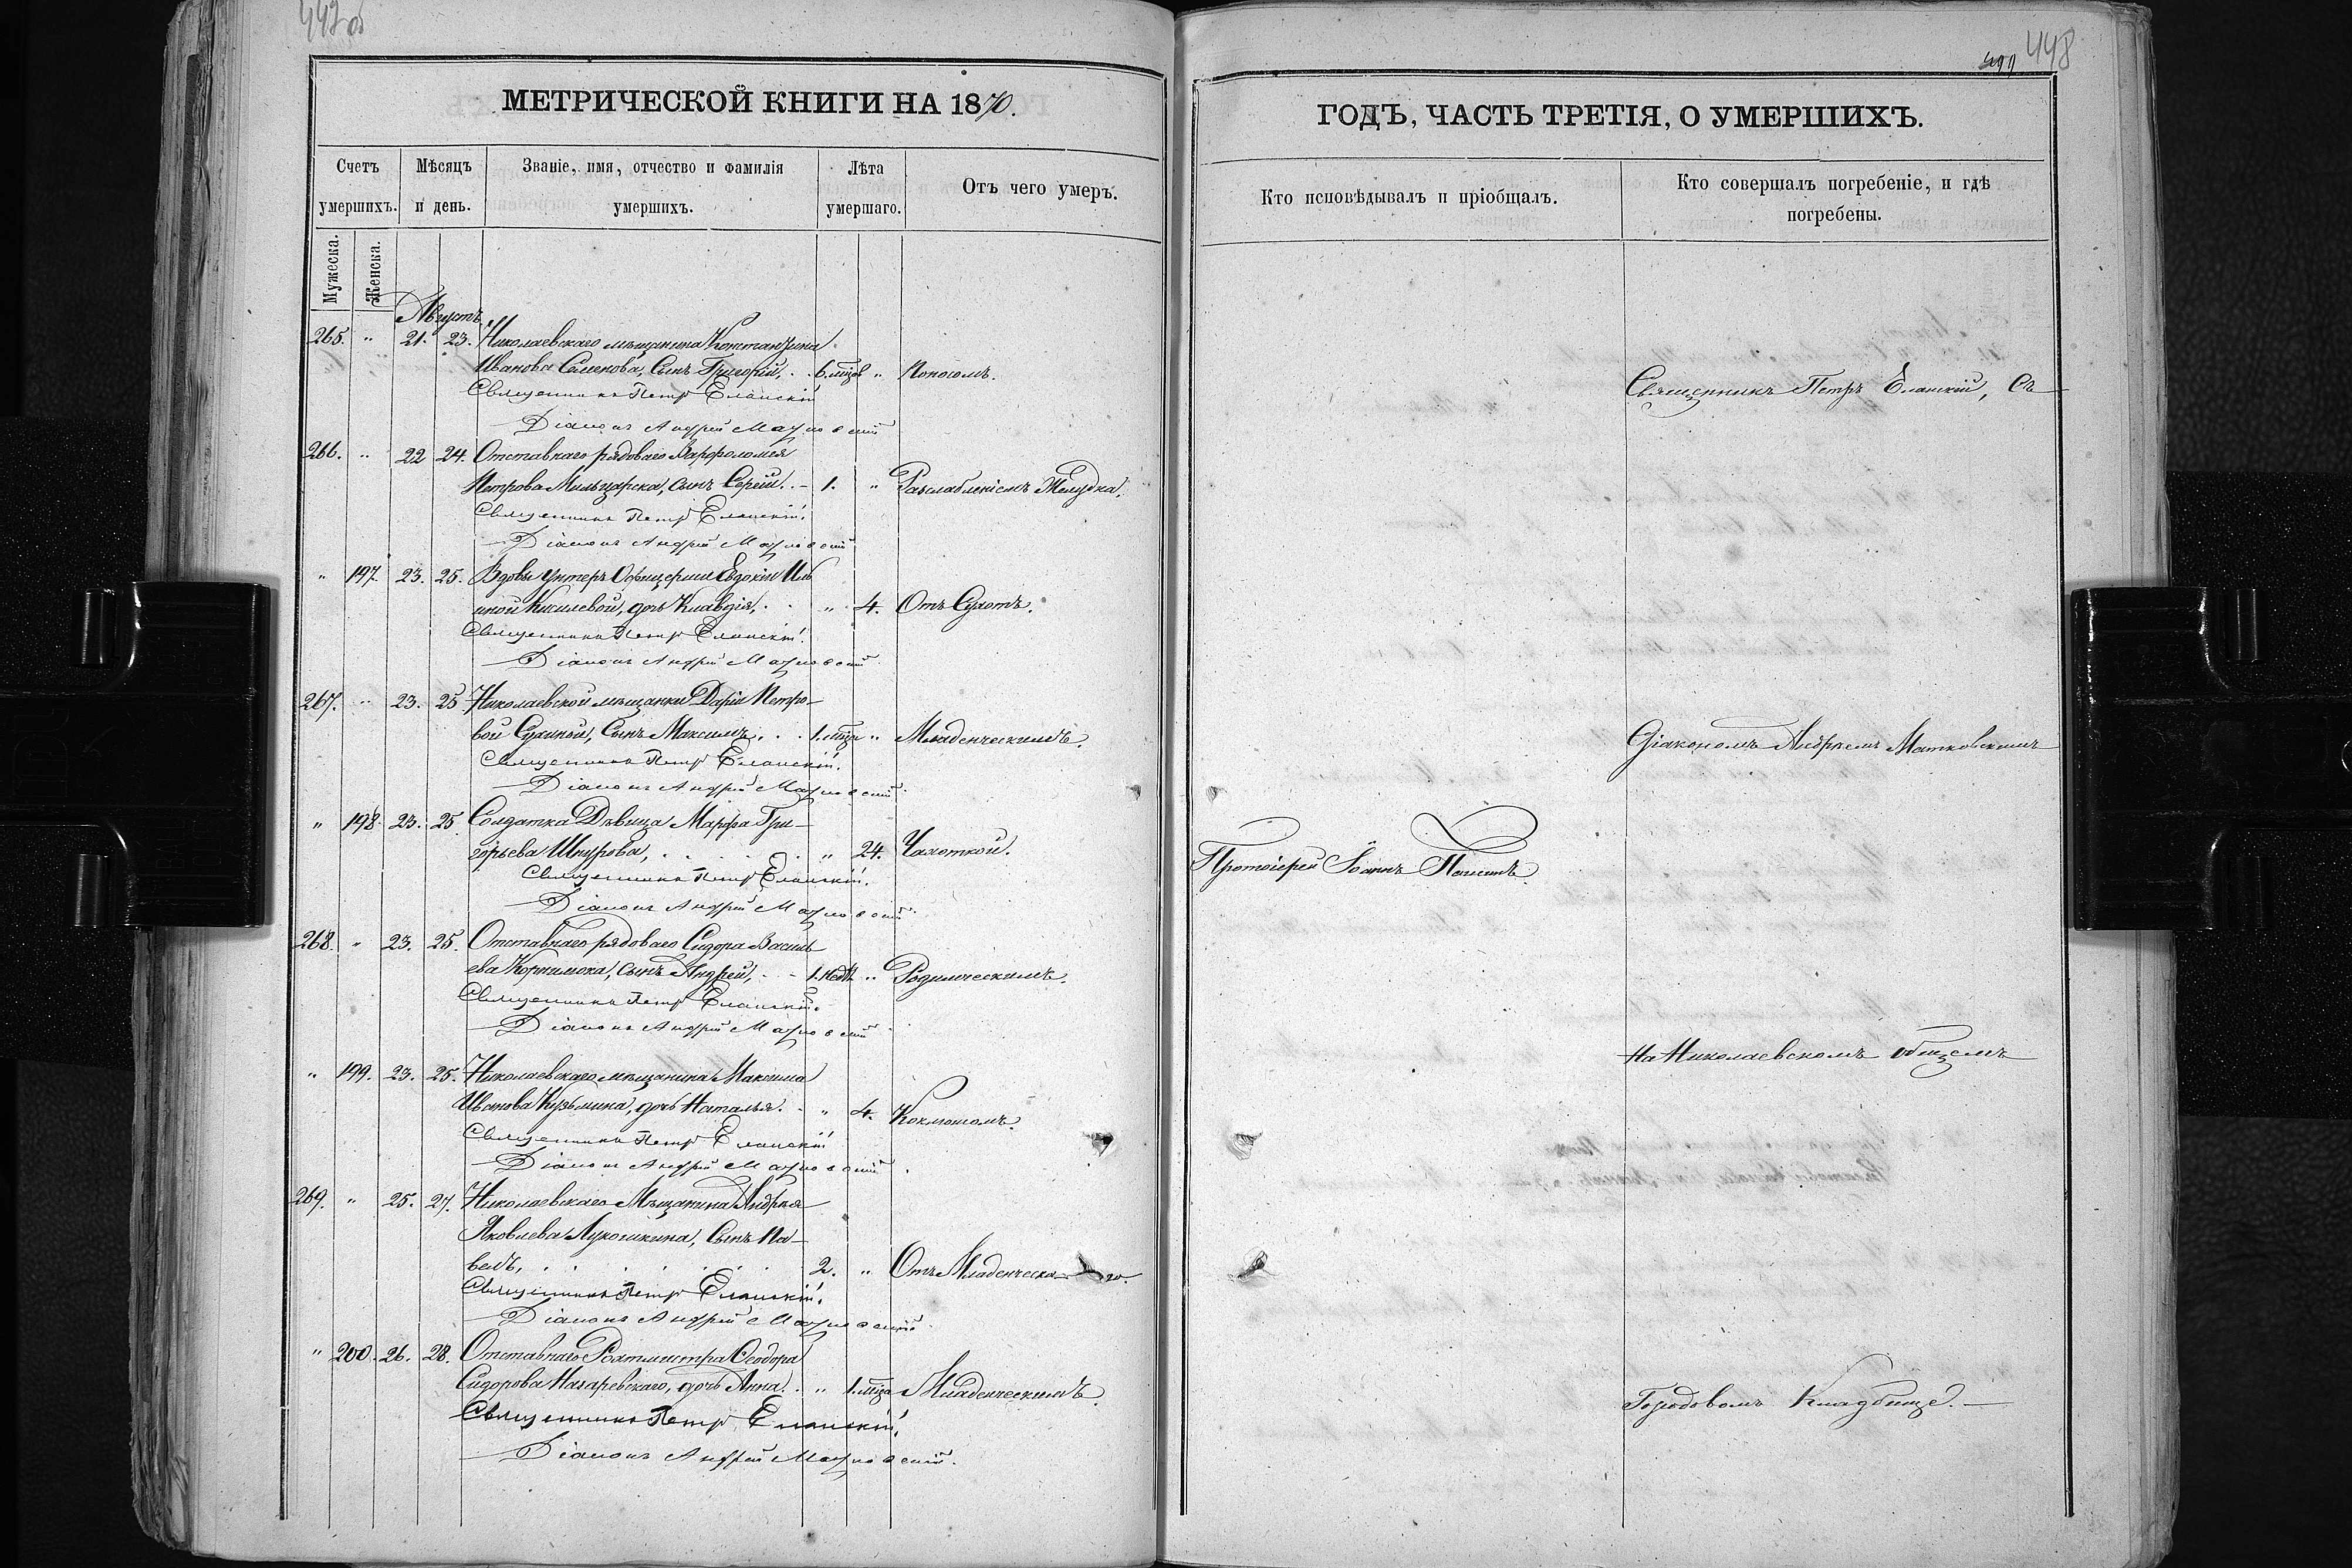 442об
МЕТРИЧЕСКОЙ КНИГИ НА 1870.
Счетъ умершихъ.
Мѣсяцъ и день.
Званіе, имя, отчество и фамилія умершихъ.
Лѣта умершаго.
Отъ чего умеръ.
Мужеска.
Женска.
Августъ
265. " 21. 23. Николаевскаго мѣщанина Константина
Иванова Семенова, Сынъ Григорій, . . 6. мцов " Поносомъ.
Священникъ Петръ Еланскій
Діаконъ Андрей Матковскій
266. " 22 24. Отставнаго рядоваго Варфоломея
Петрова Мильцарска, сынъ Сергій. . - 1. " Разслабленіемъ Желудка.
Священникъ Петръ Еланскій.
Діаконъ Андрей Матковскій
" 197. 23. 25. Вдовы Унтеръ Офицерши Евдокіи Иль
иной Киселевой, дочь Клавдія, . . " 4. Отъ Сухотъ.
Священникъ Петръ Еланскій.
Діаконъ Андрей Матковскій
267. " 23. 25 Николаевской мѣщанки Даріи Петро-
вой Сухиной, Сынъ Максимъ, . . 1. мца " Младенческимъ.
Священникъ Петръ Еланскій.
Діаконъ Андрей Матковскій.
" 198. 23. 25. Солдатка Дѣвица Марфа Гри-
горьева Шнурова, . . . . . " 24. Чахоткой.
Священникъ Петръ Еланскій.
Діаконъ Андрей Матковскій.
268. " 23. 25. Отставнаго рядоваго Сидора Василь
ева Корнилюка, сынъ Андрей, . - 1. недѣ. " Родимческимъ.
Священникъ Петръ Еланскій.
Діаконъ Андрей Матковскій
" 199. 23. 25. Николаевскаго мѣщанина Максима
Иванова Кузьмина, дочь Наталья. . " 4. Коклюшомъ.
Священникъ Петръ Еланскій
Діаконъ Андрей Матковскій.
269. " 25. 27. Николаевскаго Мѣщанина Андрея
Яковлева Лукошкина, Сынъ Па-
велъ, . . . . . . 2. " Отъ Младенческа-го.
Священникъ Петръ Еланскій.
Діаконъ Андрей Матковскій.
" 200. 26. 28. Отставнаго Ротмистра Ѳеодора
Сидорова Назаревскаго, дочь Анна. . " 1. мца Младенческимъ.
Священникъ Петръ Еланскій.
Діаконъ Андрей Матковскій.
448
ГОДЪ, ЧАСТЬ ТРЕТІЯ, О УМЕРШИХЪ.
Кто исповѣдывалъ и пріобщалъ.
Кто совершалъ погребеніе, и гдѣ погребены.
Священникъ Петръ Еланскій, Съ
Діакономъ Андреемъ Матковскимъ
Протоіерей Іоаннъ
На Николаевскомъ общемъ
Городовомъ Кладбище. -